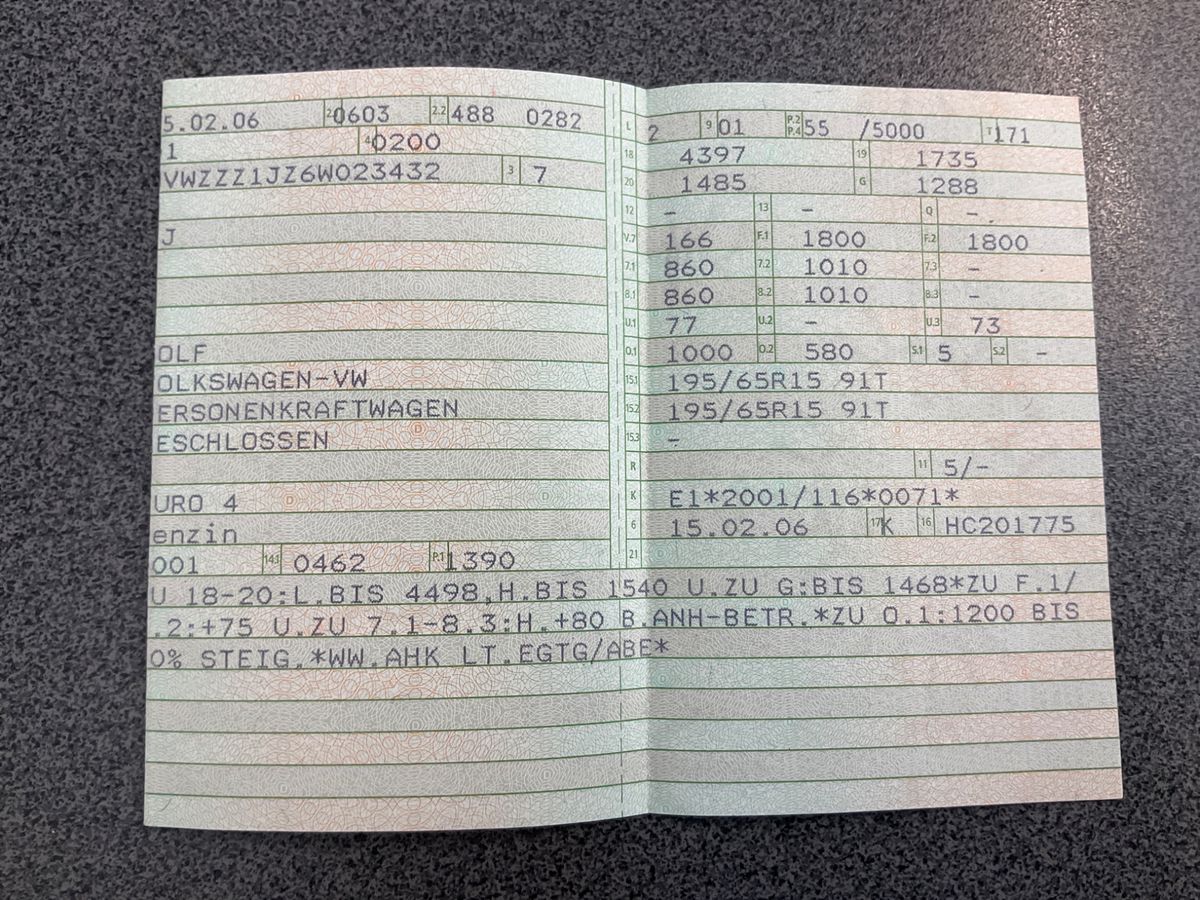 5.02.06 2 0603 2.2 488 0282
1 4 0200
VWZZZ1JZ6W023432 3 7
J
OLF
OLKSWAGEN-VW
ERSONENKRAFTWAGEN
ESCHLOSSEN
URO 4
enzin
001 14.1 0462 P.1 1390
L 2 9 01 P.2 P.4 55 /5000 T 171
18 4397 19 1735
20 1485 G 1288
12 - 13 - Q -
V.7 166 F.1 1800 F.2 1800
7.1 860 7.2 1010 7.3 -
8.1 860 8.2 1010 8.3 -
U.1 77 U.2 - U.3 73
O.1 1000 O.2 580 S.1 5 S.2 -
15.1 195/65R15 91T
15.2 195/65R15 91T
15.3 -
R 11 5/-
K E1*2001/116*0071*
6 15.02.06 17 K 16 HC201775
21
U 18-20:L.BIS 4498,H.BIS 1540 U.ZU G:BIS 1468*ZU F.1/
.2:+75 U.ZU 7.1-8.3:H.+80 B.ANH-BETR.*ZU O.1:1200 BIS
0% STEIG.*WW.AHK LT.EGTG/ABE*